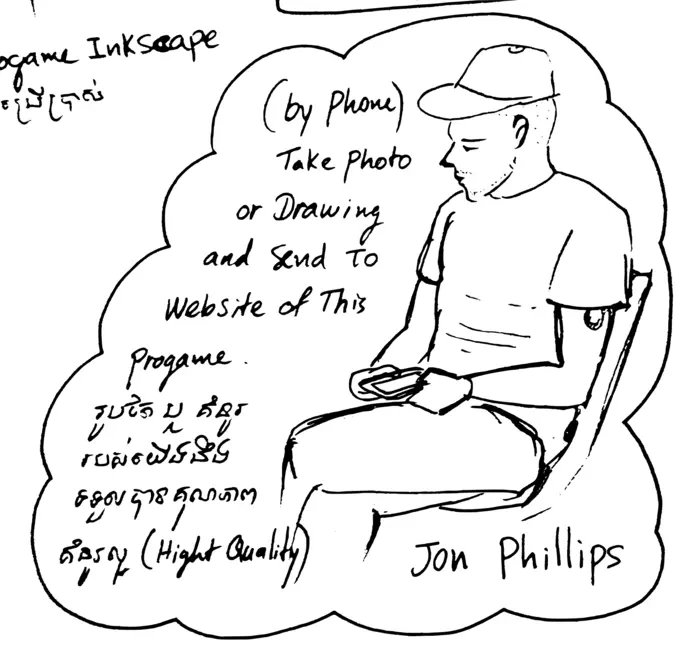 ogame Inkscape
ប្រើប្រាស់
(by Phone)
Take Photo
or Drawing
and Send To
Website of This
Progame.
រូបថៃ ឬ គំនូរ
របស់យើងនឹង
ទទួលបានគុណភាព
គំនូរល្អ (Hight Quality)
Jon Phillips